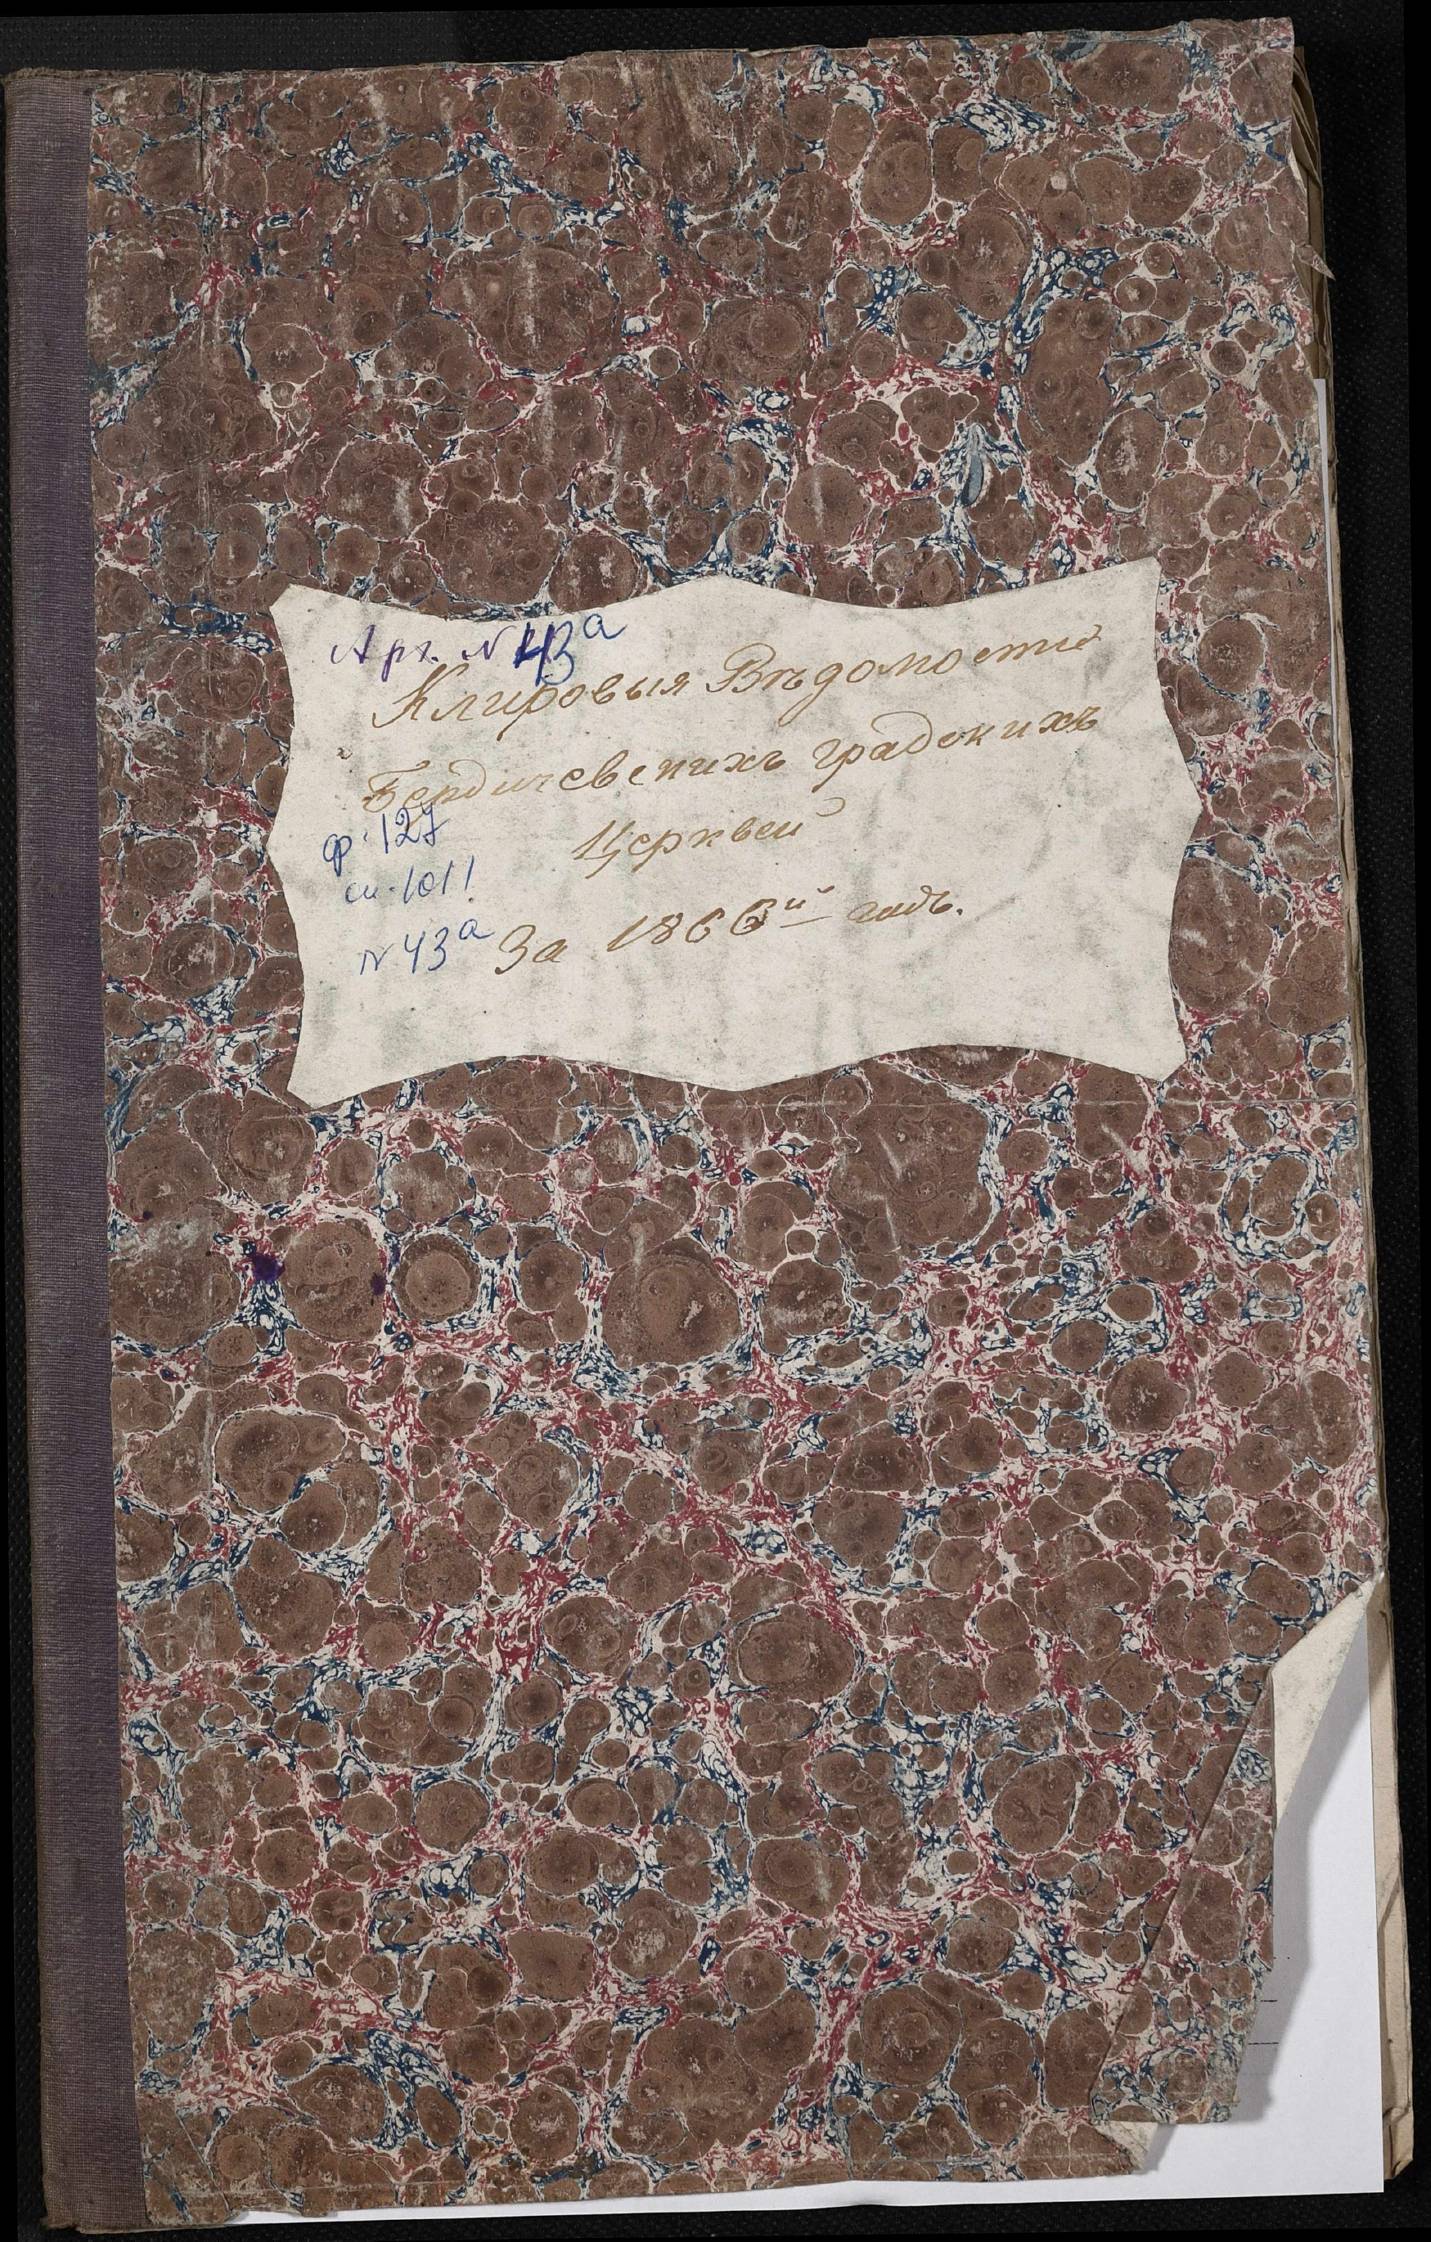 Арх. N 43а
Клировыя Вѣдомости
Бердичевскихъ градскихъ
Церквей
За 1866й годъ.
ф. 127
оп. 1011
N 43а